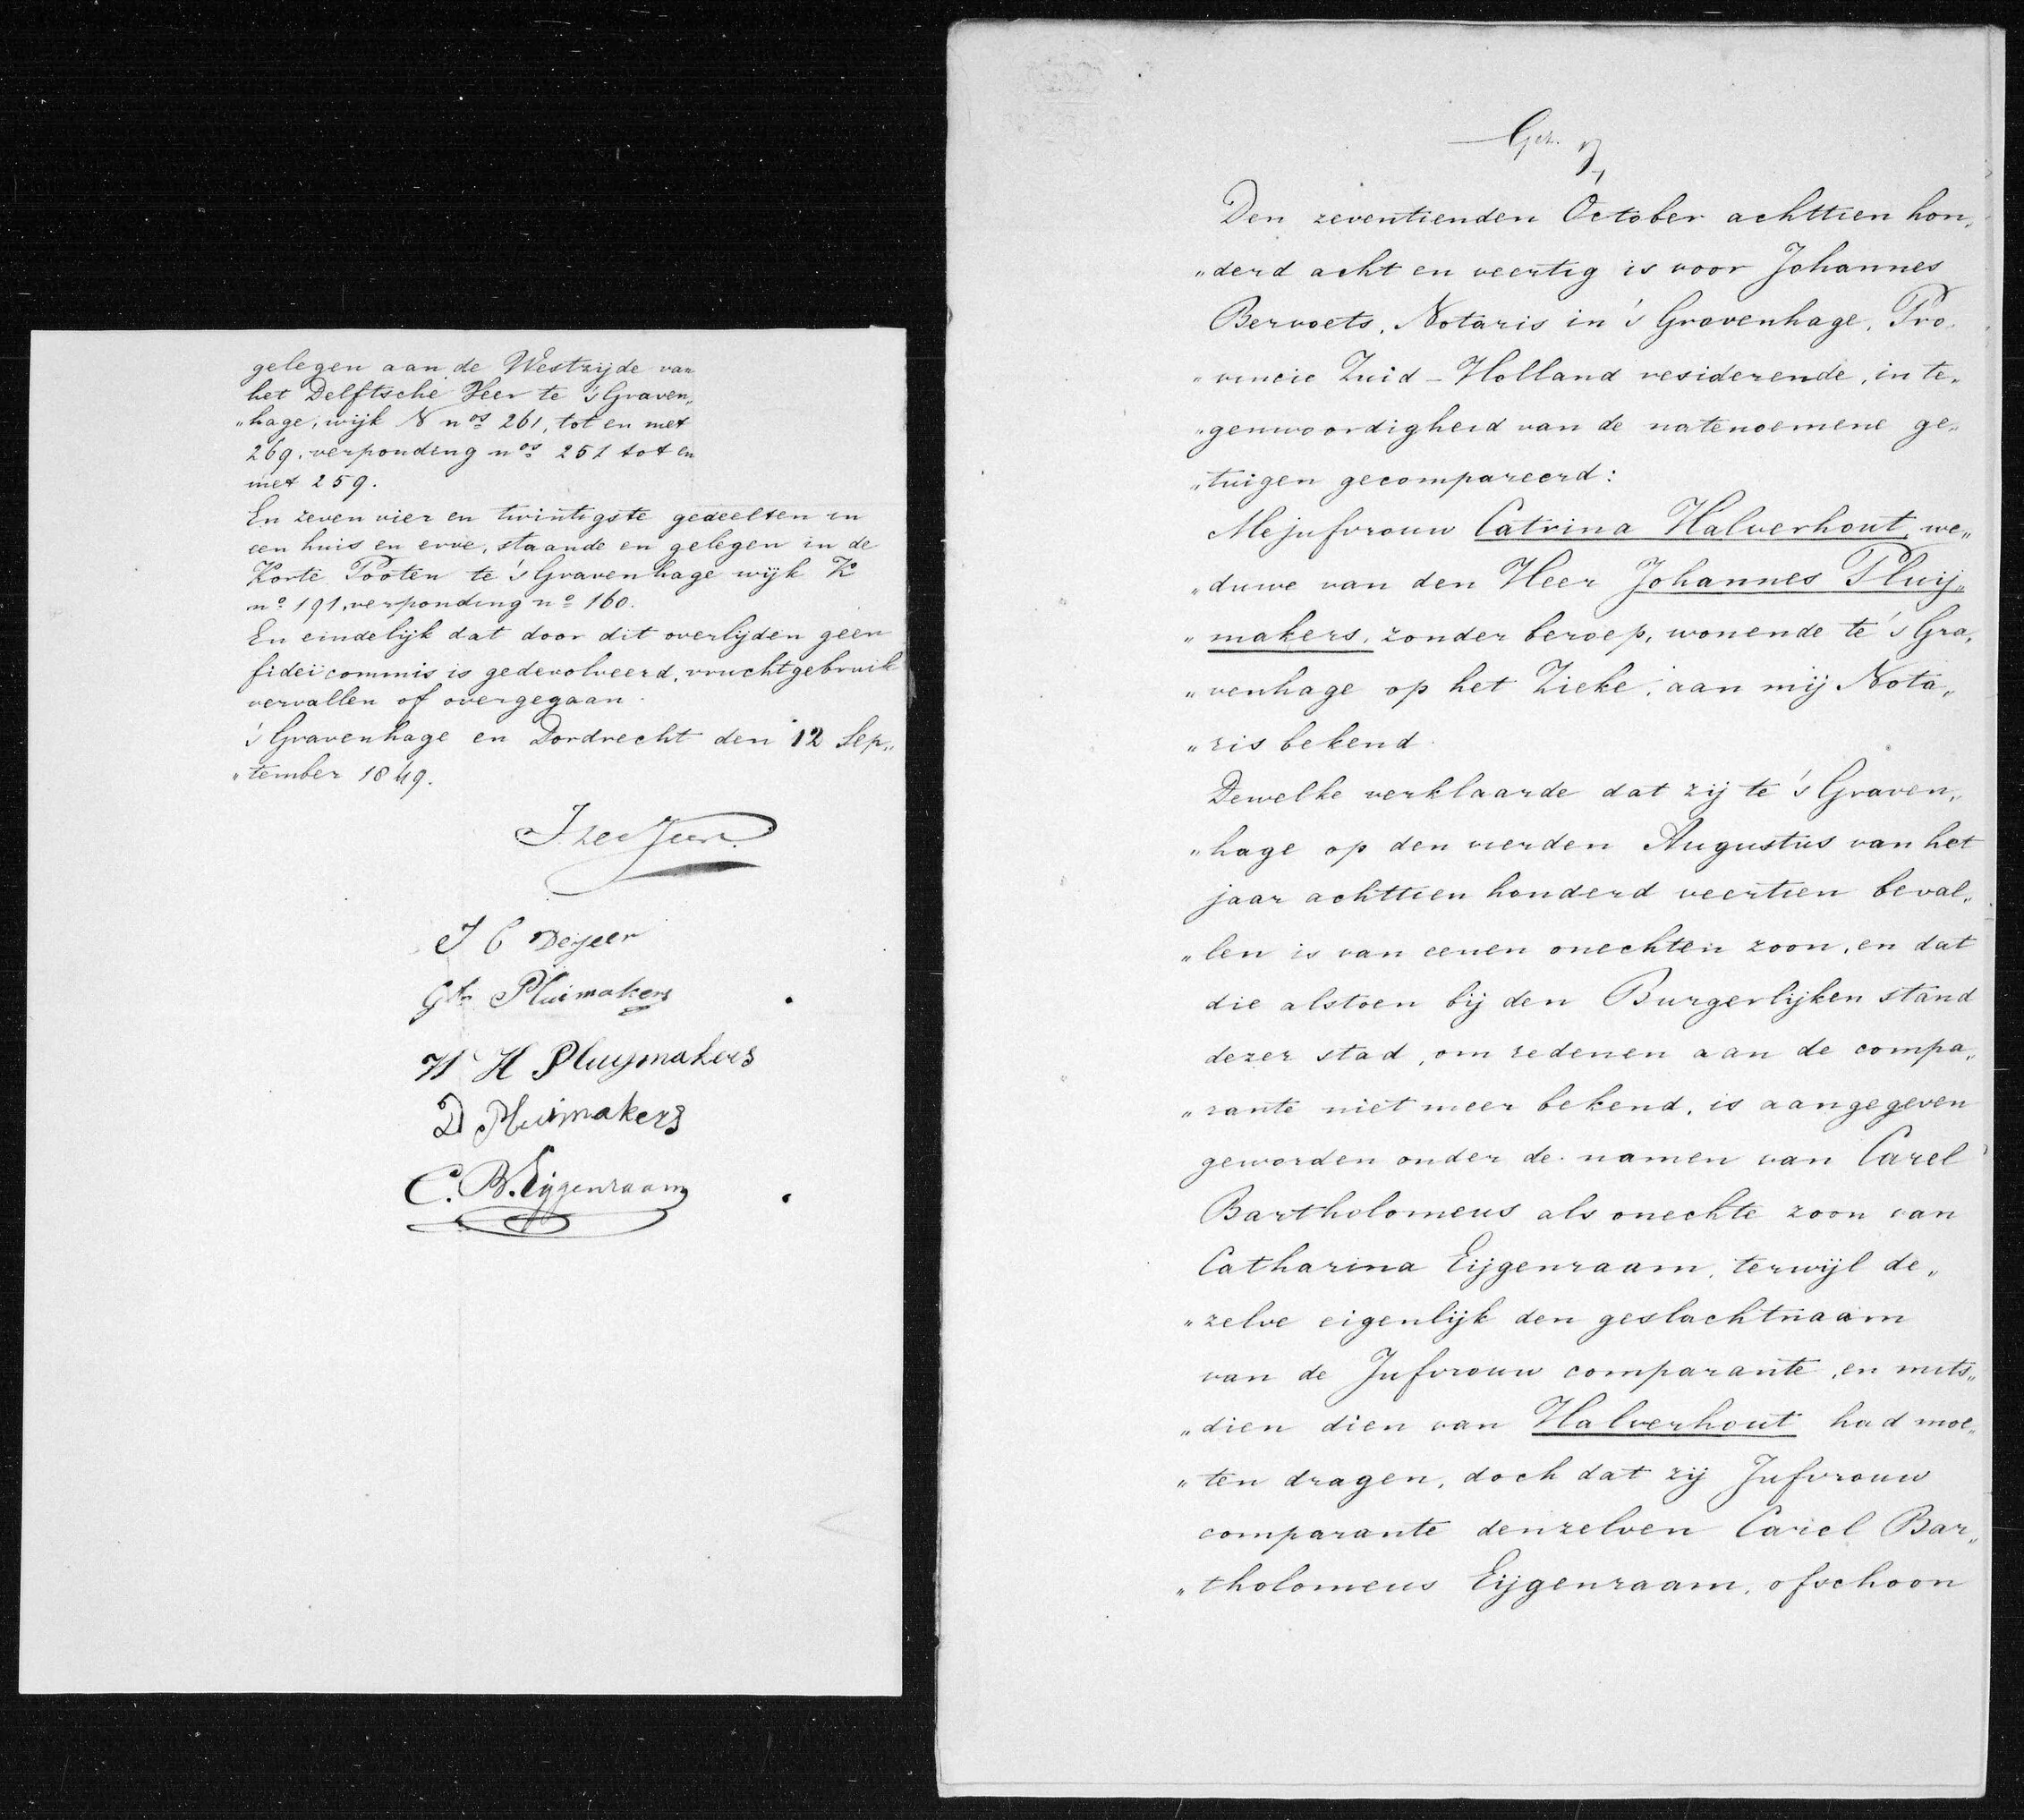 gelegen aan de Westzijde van
het Delftsche Veer te 's Graven„
„hage, wijk N nos 261, tot en met
269. verponding nos 251 tot en
met 259.
En zeven vier en twintigste gedeelten in
een huis en erve, staande en gelegen in de
Korte Pooten te 's Gravenhage wijk K
no 191, verponding no 160.
En eindelijk dat door dit overlijden geen
fideïcommis is gedevolveerd, vruchtgebruik
vervallen of overgegaan.
's Gravenhage en Dordrecht den 12 Sep„
„tember 1849.
Pluimakers
H Pluymakers
D Pluimakers
C. B. Eijgenraam
Den zeventienden October achttien hon„
„derd acht en veertig is voor Johannes
Bervoets, Notaris in 's Gravenhage, Pro„
„vincie Zuid-Holland residerende, in te„
„genwoordigheid van de natenoemene ge„
„tuigen gecompareerd:
Mejufvrouw Catrina Halverhout, we„
„duwe van den Heer Johannes Pluij„
„makers, zonder beroep, wonende te 's Gra„
„venhage op het Zieke, aan mij Nota„
„ris bekend.
Dewelke verklaarde dat zij te 's Graven„
„hage op den vierden Augustus van het
jaar achttien honderd veertien beval„
„len is van eenen onechten zoon, en dat
die alstoen bij den Burgerlijken stand
dezer stad, om redenen aan de compa„
„rante niet meer bekend, is aangegeven
geworden onder de namen van Carel
Bartholomeus als onechte zoon van
Catharina Eijgenraam, terwijl de„
„zelve eigenlijk den geslachtnaam
van de Jufvrouw comparante, en mits„
„dien dien van Halverhout had moe„
„ten dragen, doch dat zij Jufvrouw
comparante denzelven Carel Bar„
„tholomeus Eijgenraam, ofschoon